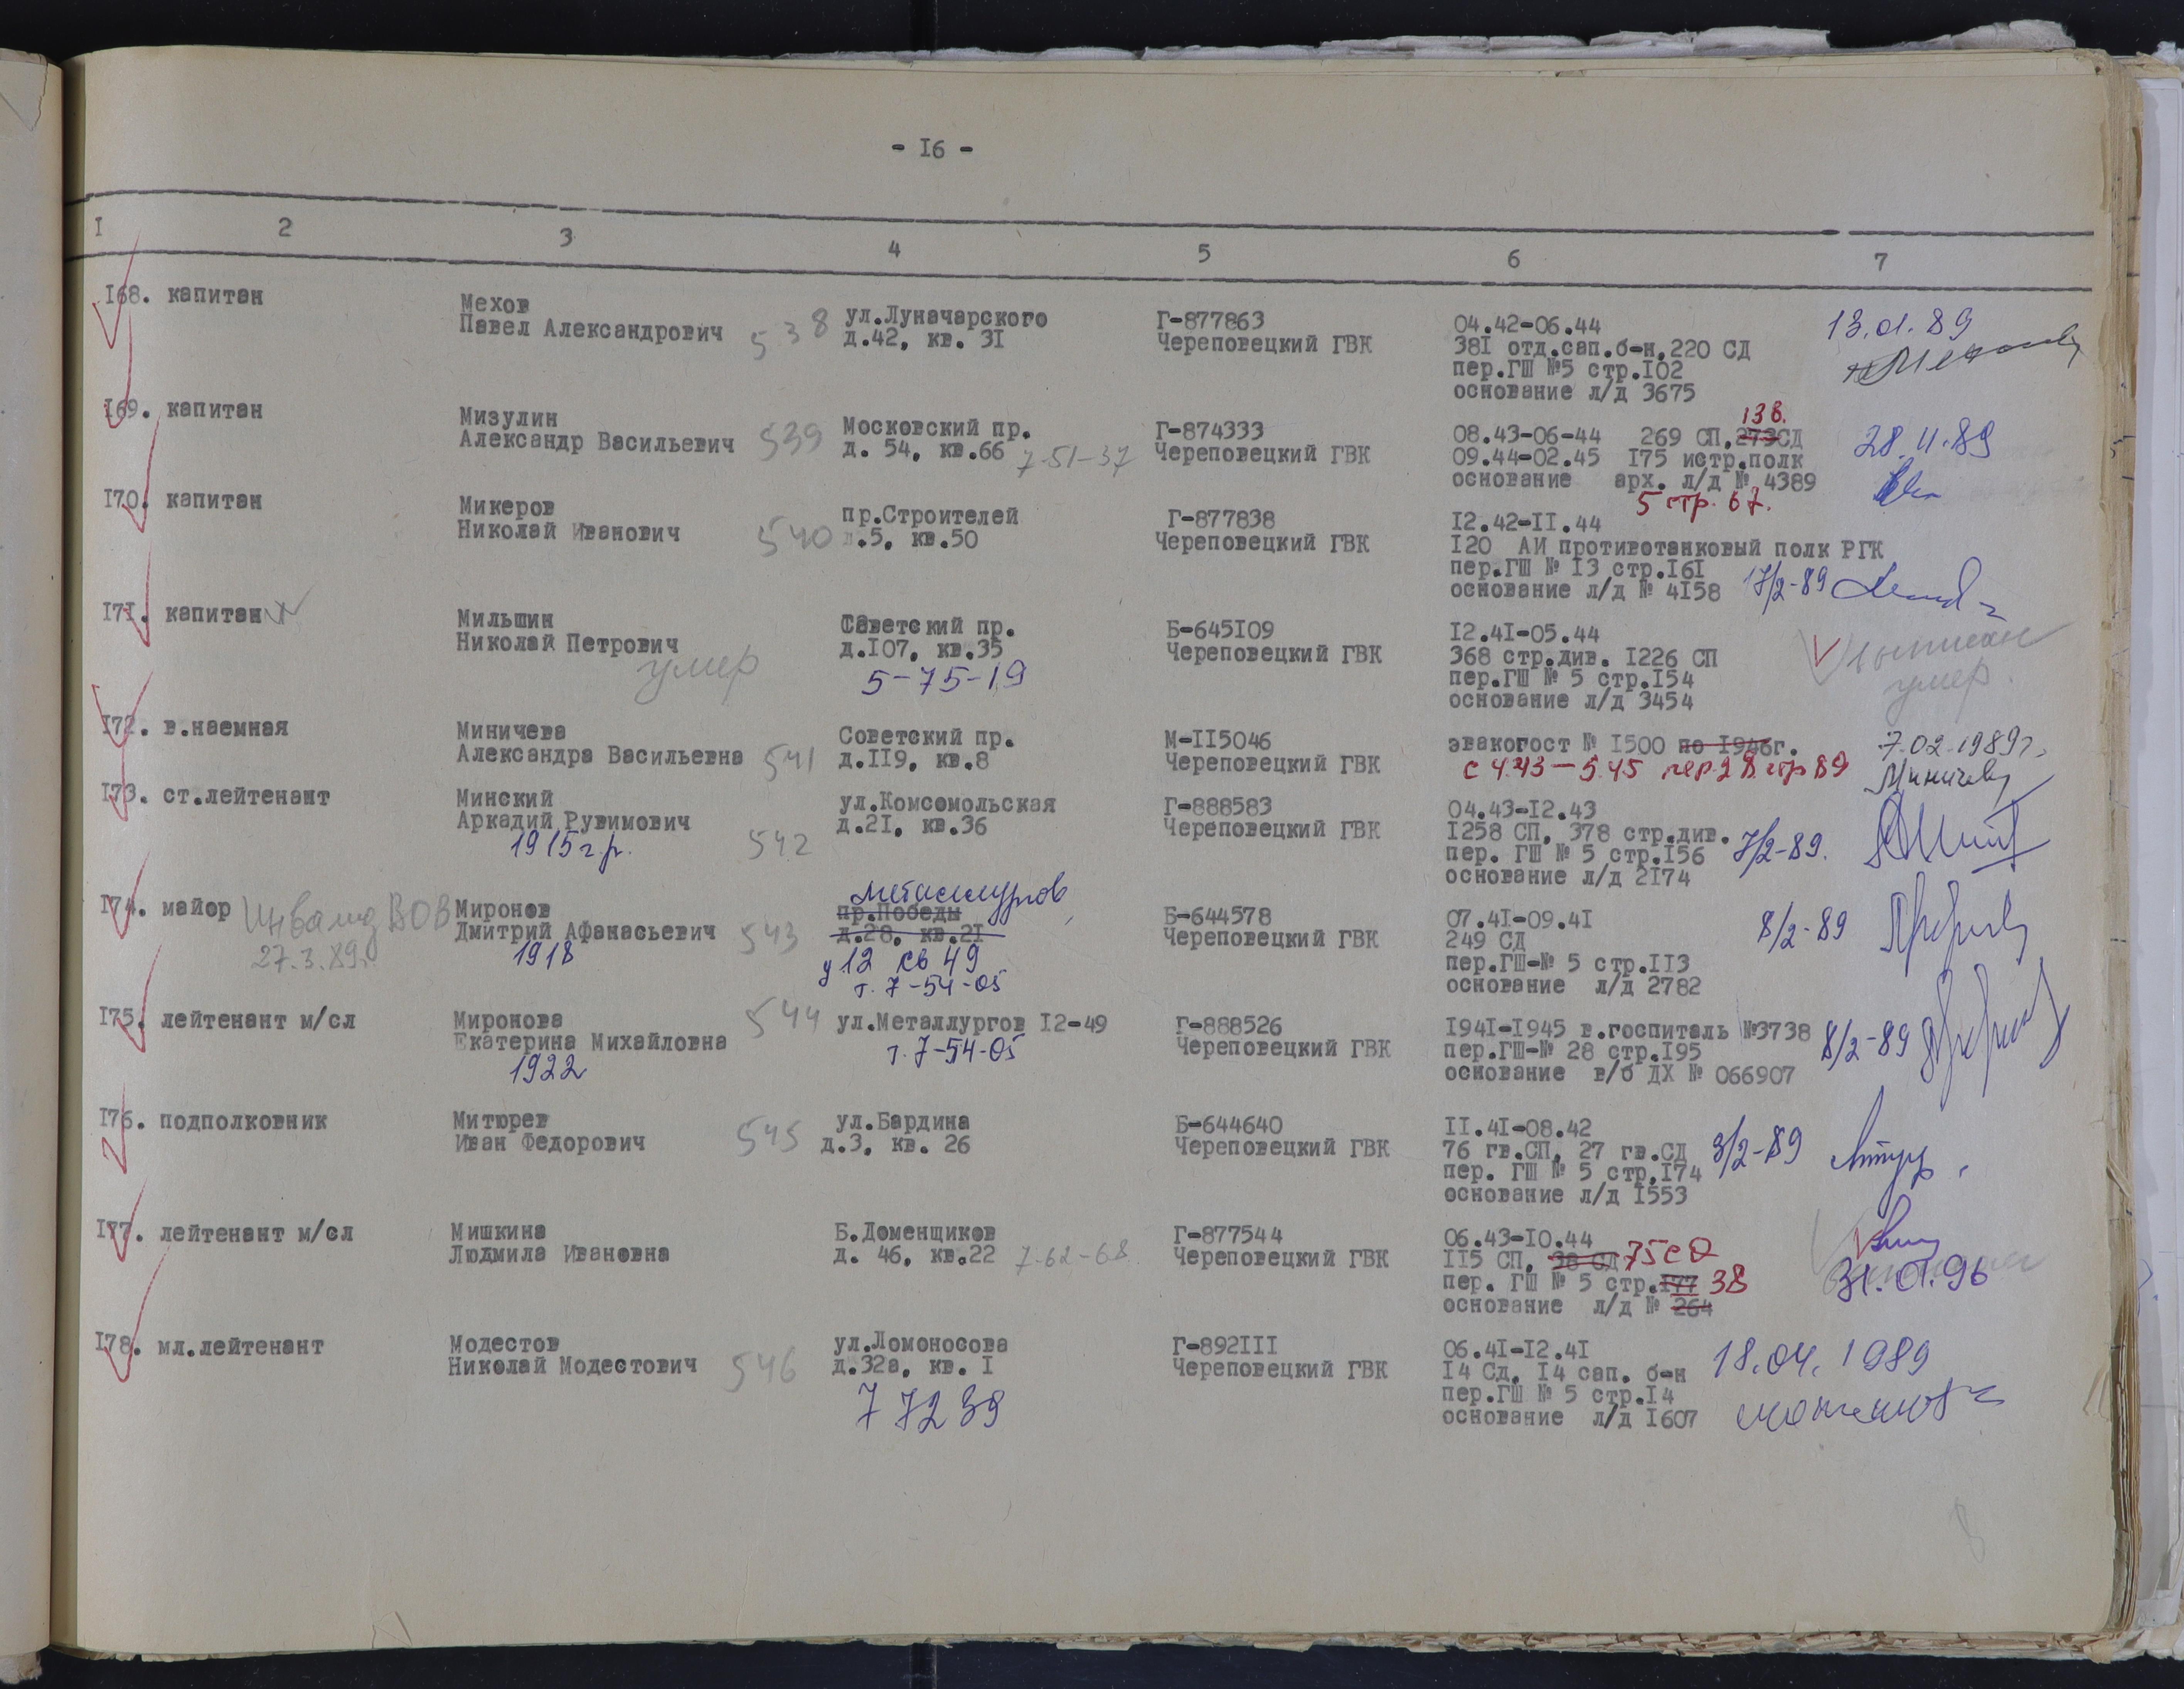 - I6 -
I 2 3 4 5 6 7
I68. капитан
Мехов
Павел Александрович 538
ул.Луначарского
д.42, кв. 3I
Г-877863
Череповецкий ГВК
04.42-06.44
38I отд.сап.б-н,220 СД
пер.ГШ №5 стр.I02
основание л/д 3675
13.01.89
I69. капитан
Мизулин
Александр Васильевич 539
Московский пр.
д. 54, кв.66 7-51-37
Г-874333
Череповецкий ГВК
138.
08.43-06-44 269 СП,273СД
09.44-02.45 I75 истр.полк
основание арх. л/д № 4389
5 стр. 67.
28.11.89
I70. капитан
Микеров
Николай Иванович 540
пр.Строителей
д.5, кв.50
Г-877838
Череповецкий ГВК
I2.42-II.44
I20 АИ противотанковый полк РГК
пер.ГШ № I3 стр.I6I
основание л/д № 4I58 17/2-89
I7I. капитан
Мильшин
Николай Петрович
умер
Советский пр.
д.I07, кв.35
5-75-19
Б-645I09
Череповецкий ГВК
I2.4I-05.44
368 стр.див. I226 СП
пер.ГШ № 5 стр.I54
основание л/д 3454
выписан
умер.
I72. в.наемная
Миничева
Александра Васильевна 541
Советский пр.
д.II9, кв.8
М-II5046
Череповецкий ГВК
эвакогост № I500 по I946г.
с 4.43-5.45 пер.28 стр 89
7.02.1989г.
Миничева
I73. ст.лейтенант
Минский
Аркадий Рувимович
1915 г.р. 542
ул.Комсомольская
д.2I, кв.36
Г-888583
Череповецкий ГВК
04.43-I2.43
I258 СП, 378 стр.див.
пер. ГШ № 5 стр.I56 7/2-89.
основание л/д 2I74
I74. майор Инвалид ВОВ
27.3.89г.
Миронов
Дмитрий Афанасьевич 543
1918
Металлургов
пр.Победы
д.28, кв.2I
д 12 кв 49
т. 7-54-05
Б-644578
Череповецкий ГВК
07.4I-09.4I
249 СД
пер.ГШ-№ 5 стр.II3
основание л/д 2782
8/2-89
I75. лейтенант м/сл
Миронова
Екатерина Михайловна 544
1922
ул.Металлургов I2-49
т. 7-54-05
Г-888526
Череповецкий ГВК
I94I-I945 в.госпиталь №3738
пер.ГШ-№ 28 стр.I95
основание в/б ДХ № 066907
8/2-89
I76. подполковник
Митюрев
Иван Федорович 545
ул.Бардина
д.3, кв. 26
Б-644640
Череповецкий ГВК
II.4I-08.42
76 гв.СП, 27 гв.СД
пер. ГШ № 5 стр,I74
основание л/д I553
3/2-89
I77. лейтенант м/сл
Мишкина
Людмила Ивановна
Б.Доменщиков
д. 46, кв.22 7-62-68
Г-877544
Череповецкий ГВК
06.43-I0.44
II5 СП, 38 СД 75 СД
пер. ГШ № 5 стр.I77 38
основание л/д № 264
31.01.96
I78. мл.лейтенант
Модестов
Николай Модестович 546
ул.Ломоносова
д.32а, кв. I
7 72 39
Г-892III
Череповецкий ГВК
06.4I-I2.4I
I4 Сд, I4 сап. б-н
пер.ГШ № 5 стр.I4
основание л/д I607
18.04.1989